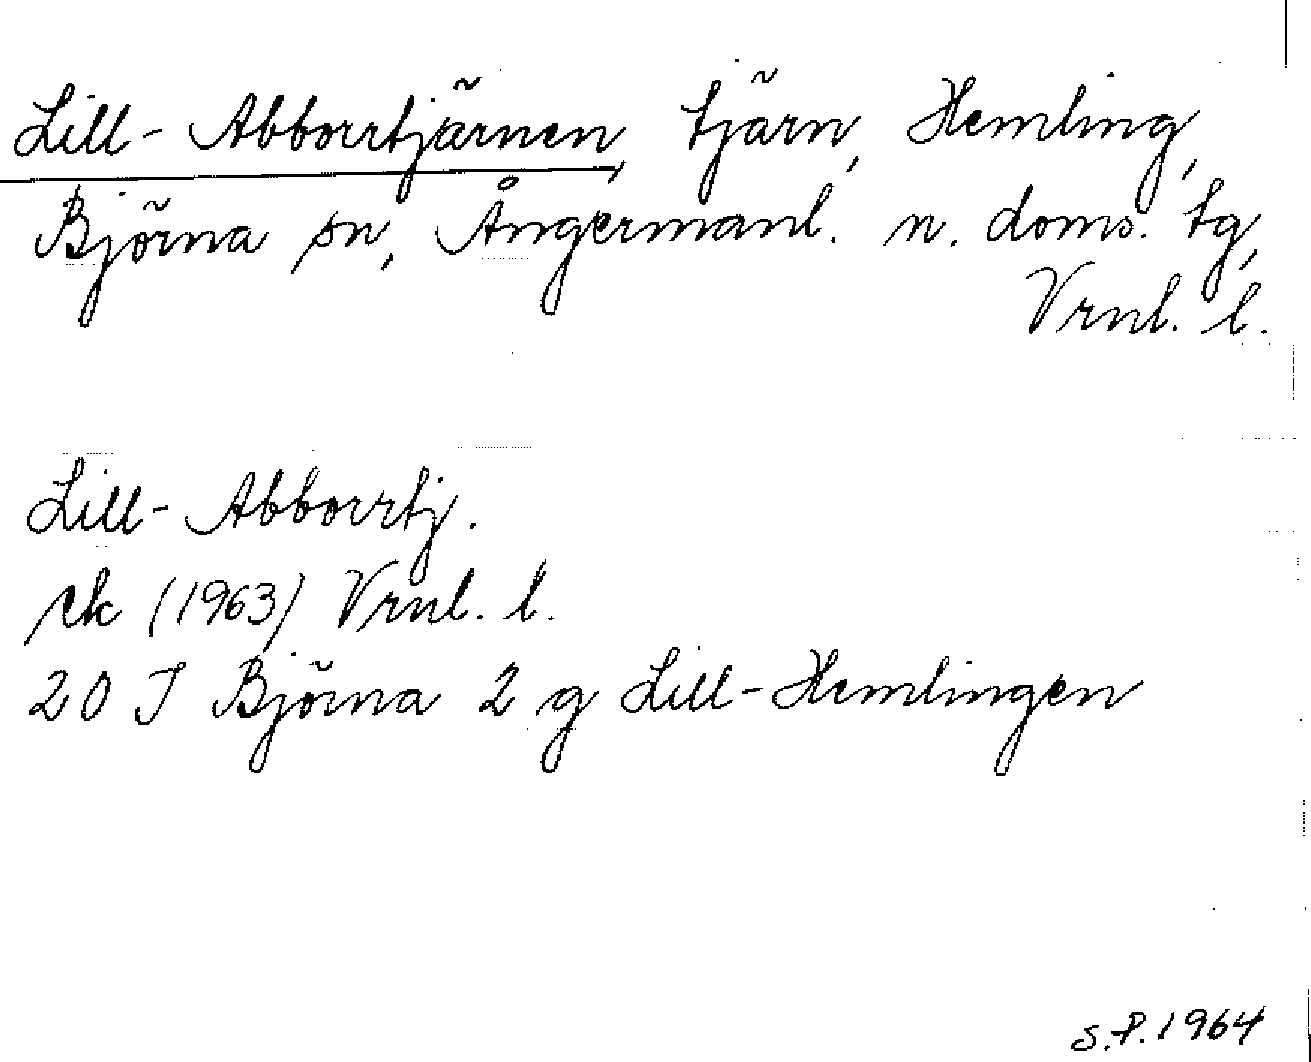 Lill-Abborrtjärnen, tjärn, Hemling,
Björna sn, Ångermanl. n. doms. tg,
Vrnl. l.
Lill-Abborrtj.
rek (1963) Vrnl. l.
20 J Björna 2 g Lill-Hemlingen
S.P. 1964